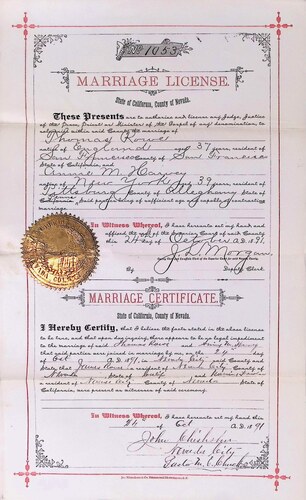 No. 1053
MARRIAGE LICENSE.
State of California, County of Nevada.
These Presents are to authorize and license any Judge, Justice
of the Peace, Priest or Minister of the Gospel of any denomination, to
solemnize within said County the marriage of
Thomas Rowe
native of England aged 37 years, resident of
San Francisco County of San Francisco
State of California, and
Annie M. Harvey
native of New York aged 39 years, resident of
Pittsburg County of Allegheny State of
said persons being of sufficient age and capable of contracting
marriage.
In Witness Whereof, I have hereunto set my hand and
affixed the seal of the Superior Court of said County this
24 day of October A.D. 1891.
J. L. Morgan
By Deputy Clerk.
MARRIAGE CERTIFICATE.
State of California, County of Nevada.
I Hereby Certify, that I believe the facts stated in the above license
to be true, and that upon due inquiry there appears to be no legal impediment
to the marriage of said Thomas Rowe and Annie M. Harvey
that said parties were joined in marriage by me, on the 24 day
of Oct A.D. 1891, in Nevada City said County and
State; that James Rowe a resident of Nevada City County of
Nevada State of Calif and
a resident of Nevada City County of Nevada State of
California, were present as witnesses of said ceremony.
In Witness Whereof, I have hereunto set my hand this
24 day of Oct A.D. 1891
John Chisholm
Nevada City
Pastor M. E. Church